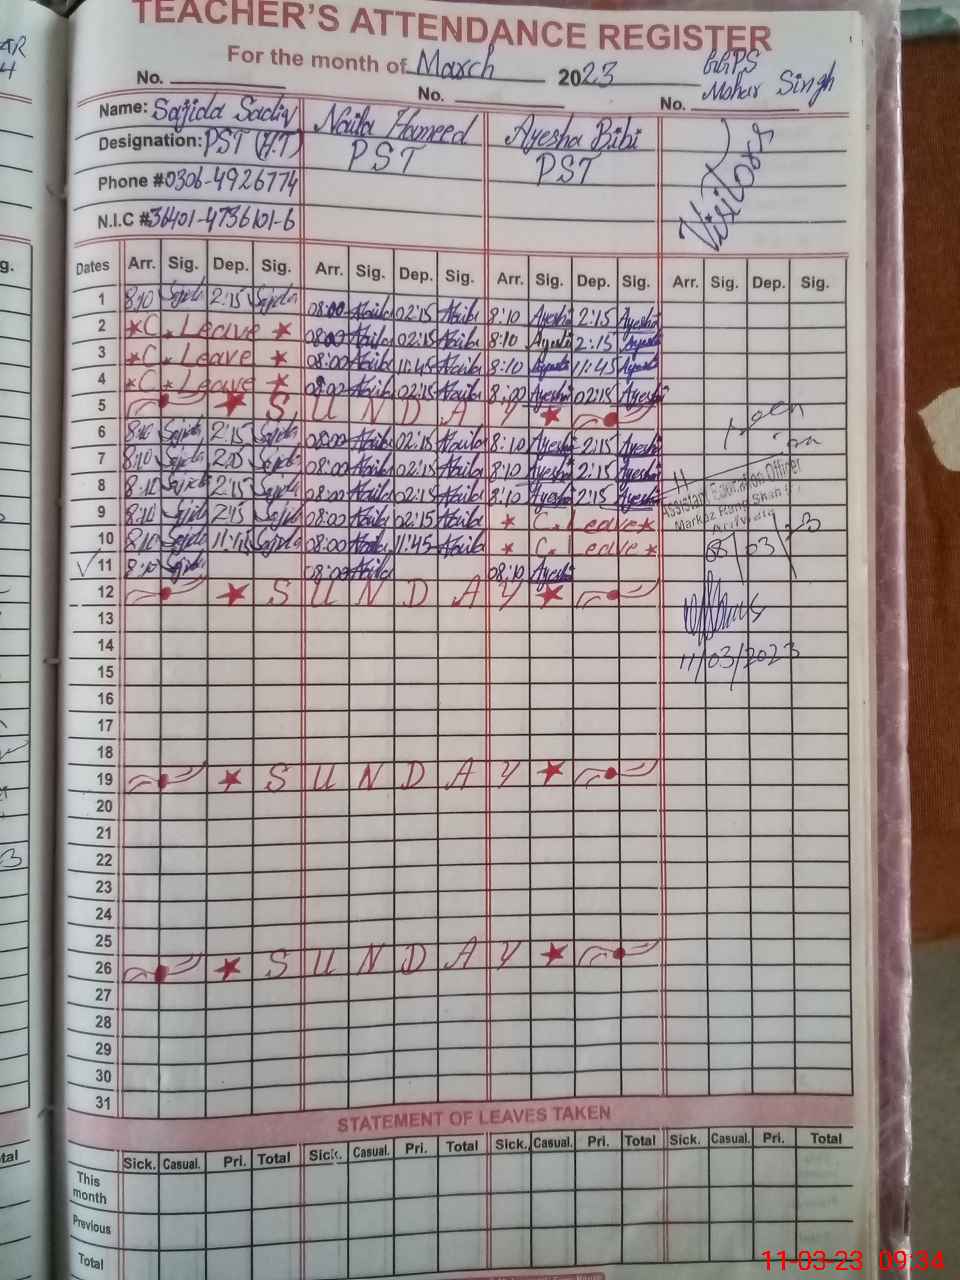 TEACHER'S ATTENDANCE REGISTER
For the month of March 2023 GGPS
No. No. No. Mohar Singh
Name: Sajida Sadiq Naila Hameed Ayesha Bibi Visitors
Designation: PST (H.T) PST PST
Phone #0306-4926774
N.I.C #36401-4736101-6
Dates Arr. Sig. Dep. Sig. Arr. Sig. Dep. Sig. Arr. Sig. Dep. Sig. Arr. Sig. Dep. Sig.
1 8:10 Sajida 2:15 Sajida 08:00 Naila 02:15 Naila 8:10 Ayesha 2:15 Ayesha
2 C. Leave 08:00 Naila 02:15 Naila 8:10 Ayesha 2:15 Ayesha
3 C. Leave 08:00 Naila 11:45 Naila 8:10 Ayesha 11:45 Ayesha
4 C. Leave Naila 02:15 Naila 8:00 Ayesha 02:15 Ayesha
5 SUNDAY
6 8:10 Sajida 2:15 Sajida 08:00 Naila 02:15 Naila 8:10 Ayesha 2:15 Ayesha
7 8:10 Sajida Sajida 08:00 Naila 02:15 Naila 8:10 Ayesha 2:15 Ayesha
8 8:10 Sajida 2:15 Sajida 08:00 Naila 02:15 Naila 8:10 Ayesha 2:15 Ayesha
9 8:10 Sajida 2:15 Sajida 08:00 Naila 02:15 Naila C. Leave
10 8:10 Sajida Sajida 08:00 Naila 11:45 Naila C. Leave
11 8:10 Sajida 08:00 Naila 08:10 Ayesha
12 SUNDAY
Assistant Education Officer
Markaz Rang Shah
/03/
11/03/2023
13
14
15
16
17
18
19 SUNDAY
20
21
22
23
24
25
26 SUNDAY
27
28
29
30
31
STATEMENT OF LEAVES TAKEN
Sick. Casual. Pri. Total Sick. Casual. Pri. Total Sick. Casual. Pri. Total Sick. Casual. Pri. Total
This month
Previous
Total
11-03-23 09:34